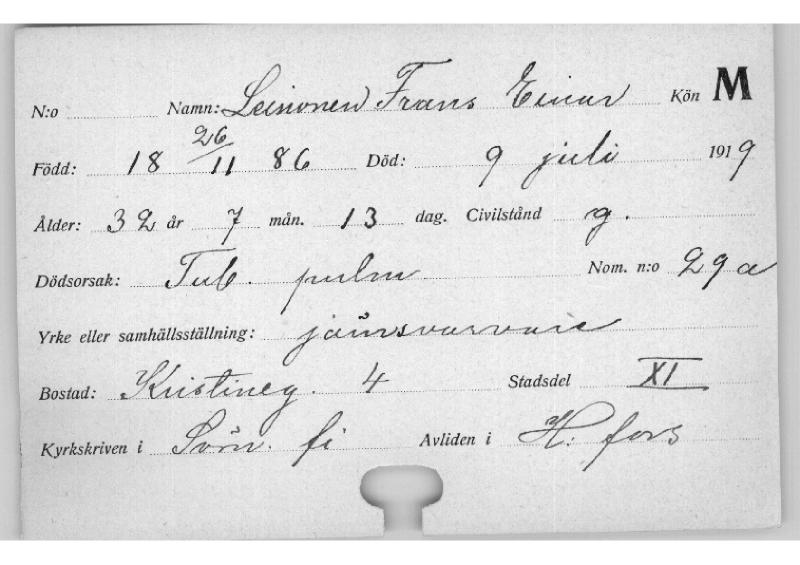 N:o Namn: Leinonen Frans Einar Kön M
Född: 18 26/11 86 Död: 9 juli 1919
Ålder: 32 år 7 mån. 13 dag. Civilstånd g.
Dödsorsak: Tub. pulm Nom. n:o 29a
Yrke eller samhällsställning: järnsvarvare
Bostad: Kristineg. 4 Stadsdel XI
Kyrkskriven i Sörn. fi Avliden i H:fors